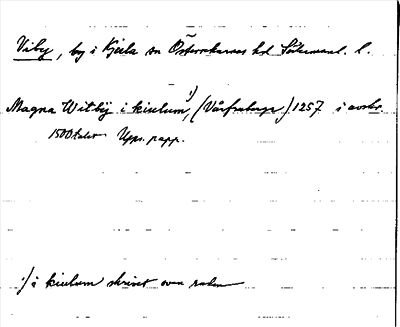 Viby, by i Kjula sn Österrekarnes hd Södermanl. l.
Magna Witbÿ i kiulum,¹) (Vårfruberga) 1257 i avskr.
1500talet Upps. papp.
¹) i kiulum skrivet över raden